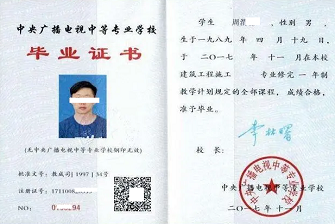 中央广播电视中等专业学校
毕业证书
(无中央广播电视中等专业学校钢印无效)
批准文号：教成司[1997]34号
注册证号：17110068
NO：
学生 周 ，性别 男
生于一九八九 年 四 月 十九 日，
于 二〇一七 年 十一 月在本校
建筑工程施工 专业修完 一 年制
教学计划规定的全部课程，成绩合格，
准予毕业。
校 长：
中央广播电视中等专业学校
二〇一七年十一月